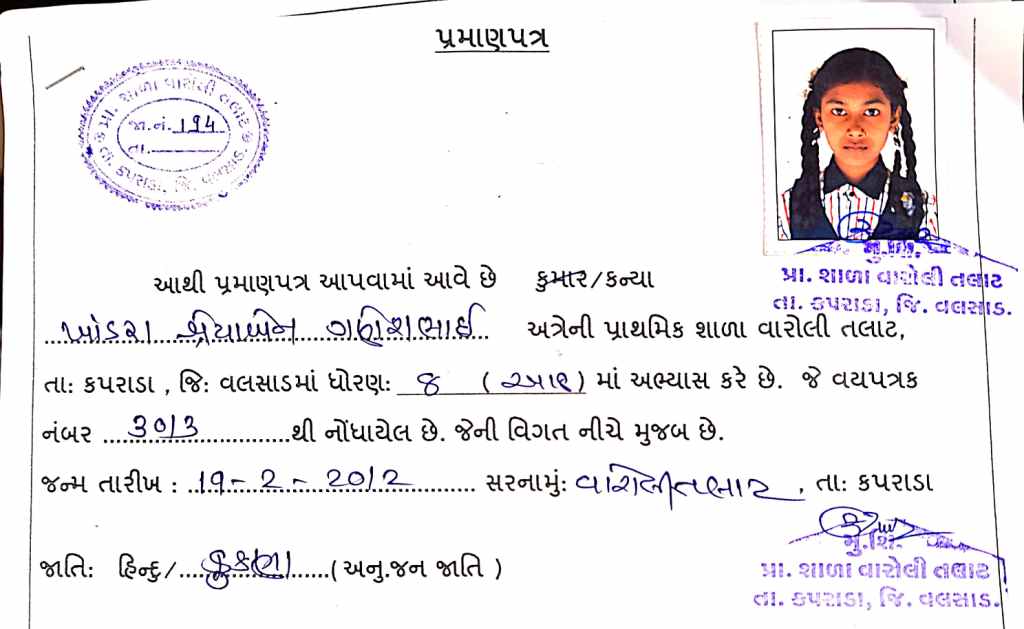 પ્રમાણપત્ર
પ્રા. શાળા વારોલી તલાટ
જા.નં. 194
તા.
તા. કપરાડા, જિ. વલસાડ.
મુ.શિ.
પ્રા. શાળા વારોલી તલાટ
તા. કપરાડા, જિ. વલસાડ.
આથી પ્રમાણપત્ર આપવામાં આવે છે કુમાર/કન્યા
ખાંડરા શ્રેયાબેન ગણેશભાઈ અત્રેની પ્રાથમિક શાળા વારોલી તલાટ,
તા: કપરાડા , જિ: વલસાડમાં ધોરણ: 8 (આઠ) માં અભ્યાસ કરે છે. જે વયપત્રક
નંબર 3013 થી નોંધાયેલ છે. જેની વિગત નીચે મુજબ છે.
જન્મ તારીખ : 19 - 2 - 2012 સરનામું: વારોલી તલાટ , તા: કપરાડા
જાતિ: હિન્દુ/ કુકણા (અનુ.જન જાતિ )
મુ.શિ.
પ્રા. શાળા વારોલી તલાટ
તા. કપરાડા, જિ. વલસાડ.